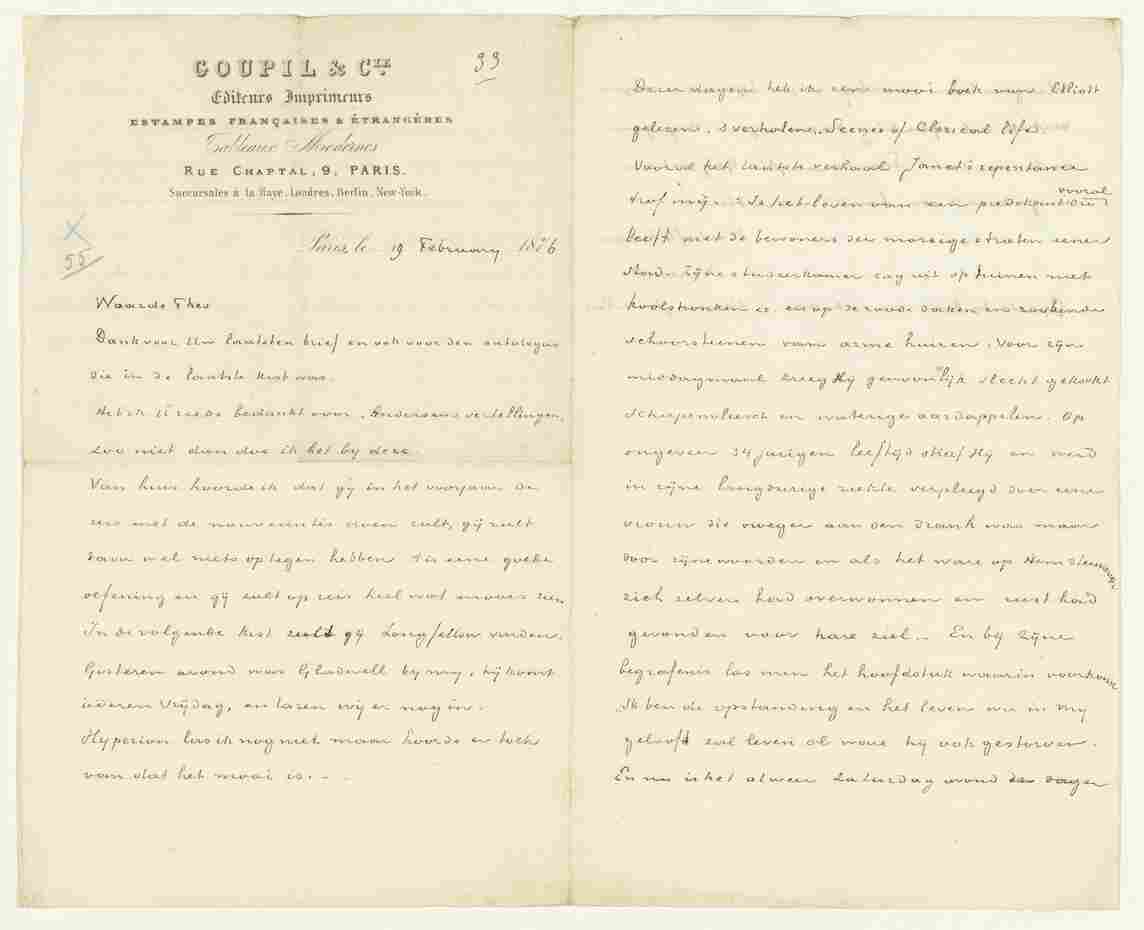 33
GOUPIL & CIE
Editeurs Imprimeurs
ESTAMPES FRANÇAISES & ÉTRANGÈRES
Tableaux Modernes
RUE CHAPTAL, 9, PARIS.
Succursales à la Haye, Londres, Berlin, New-York.
X
55
Paris le 19 February 1876
Waarde Theo
Dank voor Uw laatsten brief en ook voor den catalogus
die in de laatste kist was.
Heb ik U reeds bedankt voor „Andersens vertellingen,
zoo niet dan doe ik het by deze.
Van huis hoorde ik dat gij in het voorjaar de
reis met de nouveautés doen zult, gij zult
daar wel niets op tegen hebben 't is eene goede
oefening en gij zult op reis heel wat moois zien
In de volgende kist zult gij Longfellow vinden.
Gisteren avond was Gladwell by my, hij komt
iederen Vrijdag, en lazen wij er nog in.
Hyperion las ik nog niet maar hoorde er toch
van dat het mooi is. —
Dezer dagen heb ik een mooi boek van Elliott
gelezen, 3 verhalen, „Scenes of Clerical life„
Vooral het laatste verhaal Janet's repentance
trof mij. 't Is het leven van een predikant die vooral
leeft met de bewoners der morsige straten eener
stad. Zijne studeerkamer zag uit op tuinen met
koolstronken &c. en op de roode daken en rookende
schoorsteenen van arme huizen. Voor zijn
middagmaal kreeg Hij gewoonlijk slecht gekookt
schapenvleesch en waterige aardappelen. Op
ongeveer 34 jarigen leeftijd stierf Hij en werd
in zijne langdurige ziekte verpleegd door eene
vrouw die vroeger aan den drank was maar
door zijne woorden en als het ware op Hem steunende
zich zelven had overwonnen en rust had
gevonden voor hare ziel. En bij zijne
begrafenis las men het hoofdstuk waarin voorkomt
„Ik ben de opstanding en het leven wie in My
gelooft zal leven al ware hij ook gestorven.
En nu is het alweer Saturday avond de dagen